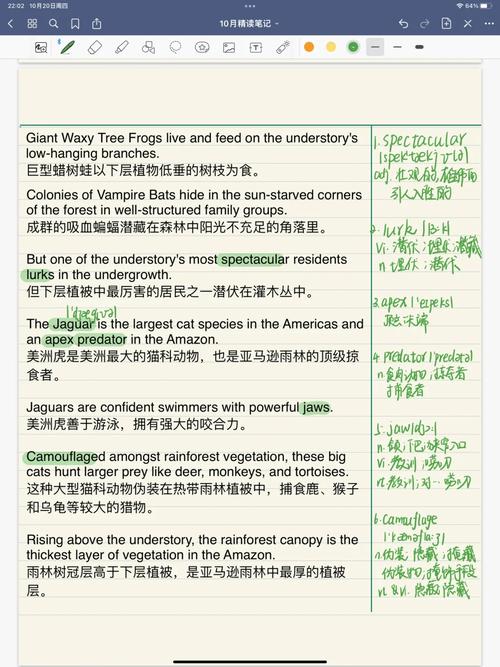 22:02 10月20日周四
64%
10月精读笔记
Giant Waxy Tree Frogs live and feed on the understory's
low-hanging branches.
巨型蜡树蛙以下层植物低垂的树枝为食。
Colonies of Vampire Bats hide in the sun-starved corners
of the forest in well-structured family groups.
成群的吸血蝙蝠潜藏在森林中阳光不充足的角落里。
But one of the understory's most spectacular residents
lurks in the undergrowth.
但下层植被中最厉害的居民之一潜伏在灌木丛中。
The Jaguar is the largest cat species in the Americas and
an apex predator in the Amazon.
美洲虎是美洲最大的猫科动物，也是亚马逊雨林的顶级掠
食者。
Jaguars are confident swimmers with powerful jaws.
美洲虎善于游泳，拥有强大的咬合力。
Camouflaged amongst rainforest vegetation, these big
cats hunt larger prey like deer, monkeys, and tortoises.
这种大型猫科动物伪装在热带雨林植被中，捕食鹿、猴子
和乌龟等较大的猎物。
Rising above the understory, the rainforest canopy is the
thickest layer of vegetation in the Amazon.
雨林树冠层高于下层植被，是亚马逊雨林中最厚的植被
层。
1. spectacular
adj. 壮观的,
引人入胜的
2. lurk
vi. 潜伏;埋伏;潜藏
n. 埋伏;潜伏
3. apex
顶点 末端
4. predator
n. 食肉动物;掠夺者
捕食者
5. jaw
n. 颌;下巴
vi. 教训;唠叨
vt. 教训;对…唠叨
6. camouflage
n. 伪装;隐藏;掩藏
vt. & vi. 隐蔽 隐藏